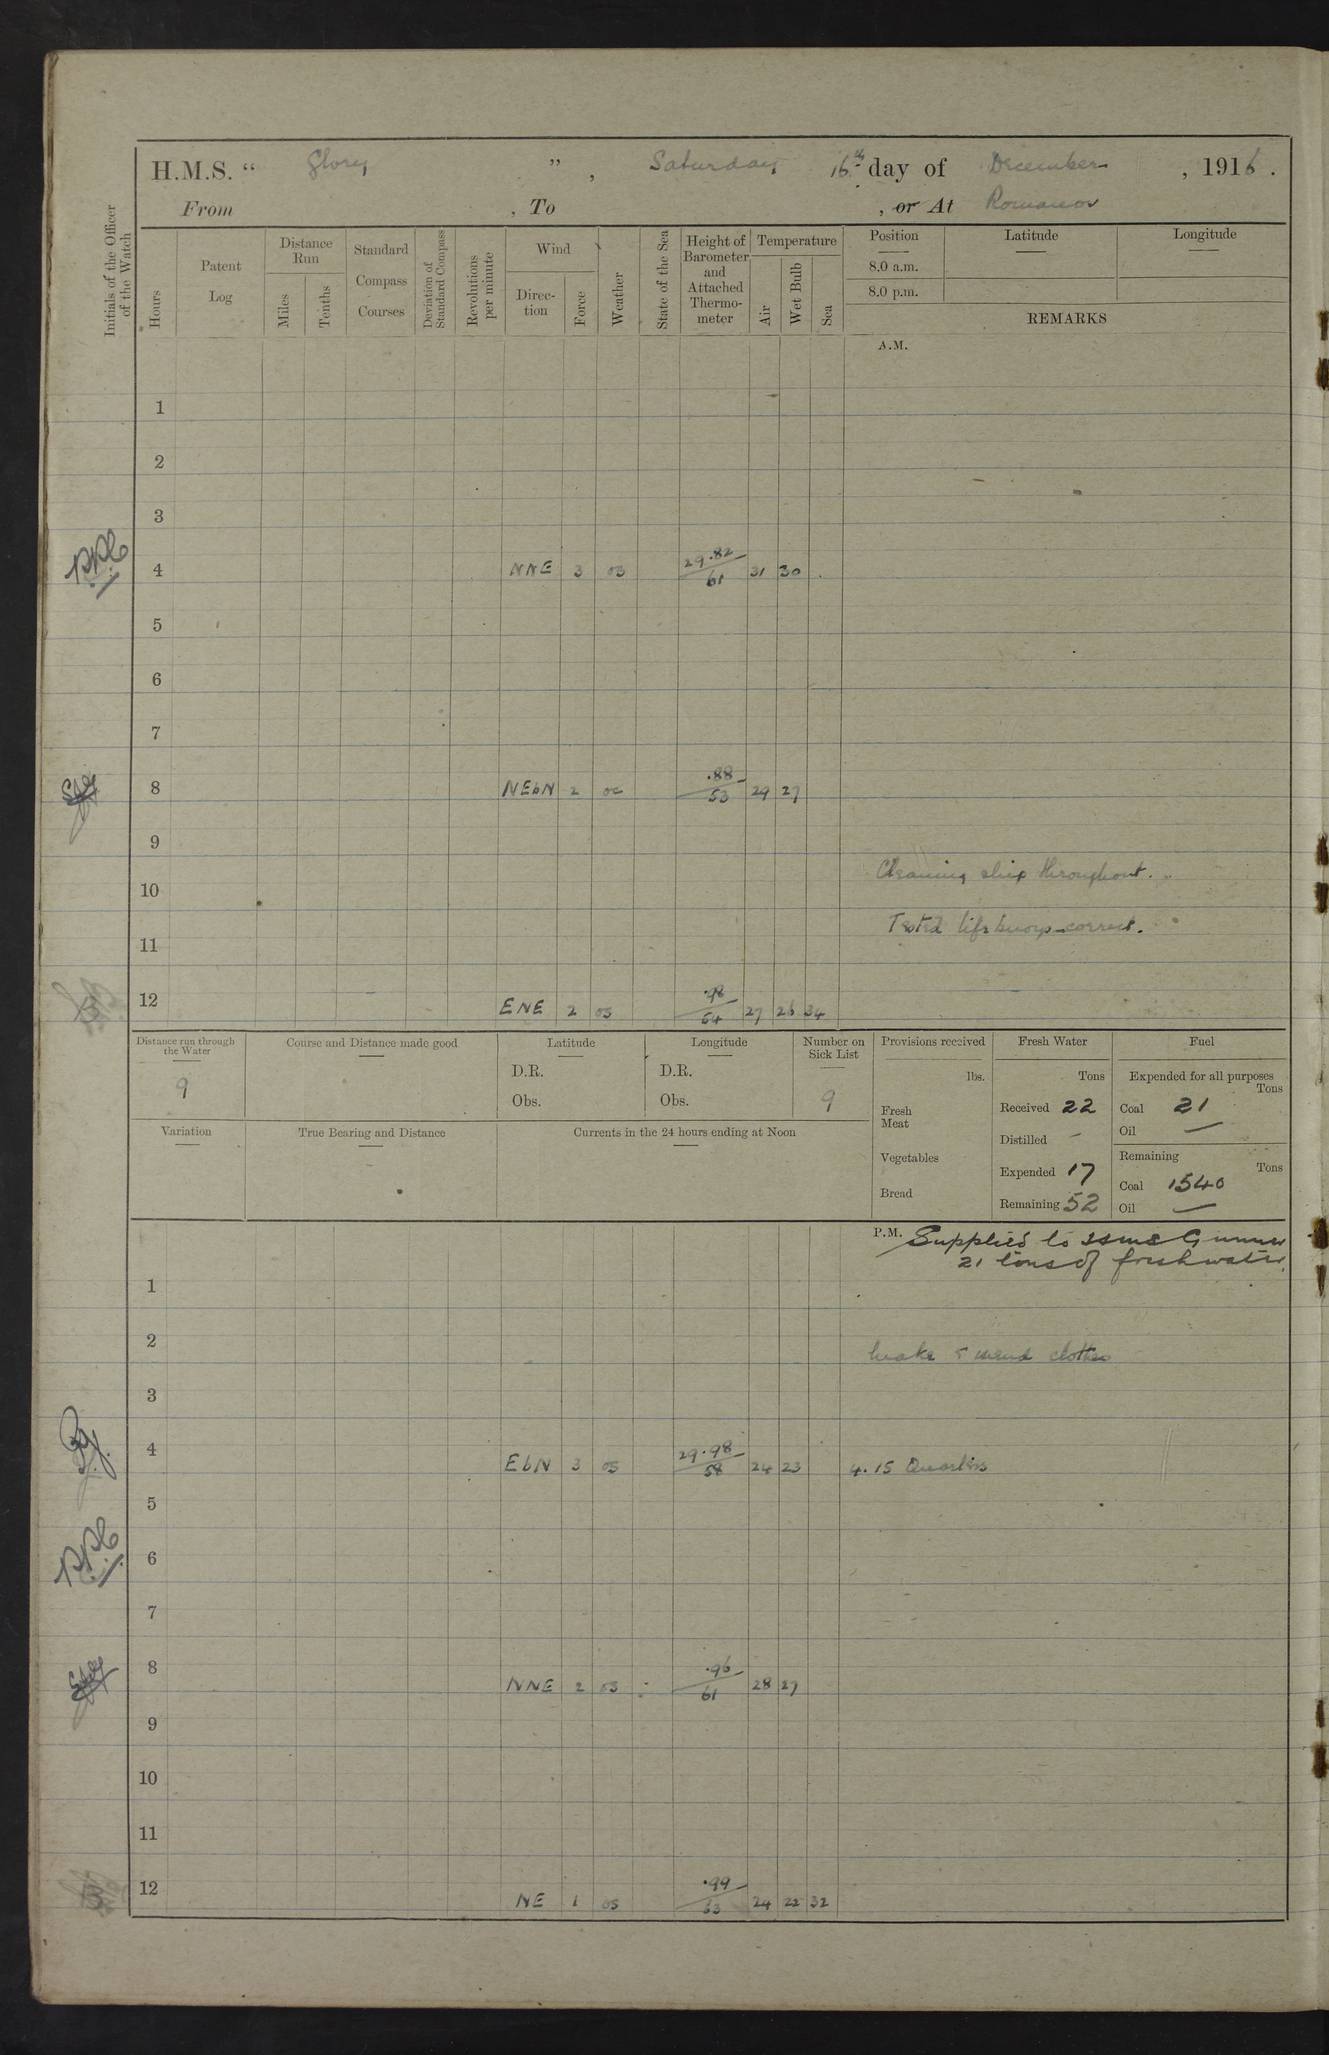 H.M.S. " Glory ", Saturday 16th day of December, 1916.
From , To , or At Romanov
Initials of the Officer of the Watch
Hours
Patent Log
Distance Run
Miles
Tenths
Standard Compass Courses
Deviation of Standard Compass
Revolutions per minute
Wind
Direction
Force
Weather
State of the Sea
Height of Barometer and Attached Thermometer
Temperature
Air
Wet Bulb
Sea
Position
Latitude
Longitude
8.0 a.m.
8.0 p.m.
REMARKS
A.M.
1
2
3
4 NNE 3 29.82 61 31 30
5
6
7
8 NEbN 2 oc .88 53 29 27
9
Cleaning ship throughout.
10
Tested lifebuoys correct.
11
12 ENE 2 .98 54 27 26 34
Distance run through the Water
9
Course and Distance made good
Latitude
D.R.
Obs.
Longitude
D.R.
Obs.
Number on Sick List
9
Variation
True Bearing and Distance
Currents in the 24 hours ending at Noon
Provisions received
lbs.
Fresh Meat
Vegetables
Bread
Fresh Water
Tons
Received 22
Distilled –
Expended 17
Remaining 52
Fuel
Expended for all purposes
Tons
Coal 21
Oil —
Remaining
Tons
Coal 1540
Oil —
P.M. Supplied to Gunner
21 tons of freshwater.
1
2 Make & mend clothes
3
4 EbN 3 29.98 58 24 23 4.15 Quarters
5
6
7
8 NNE 2 .96 61 28 27
9
10
11
12 NE 1 .99 63 24 22 32